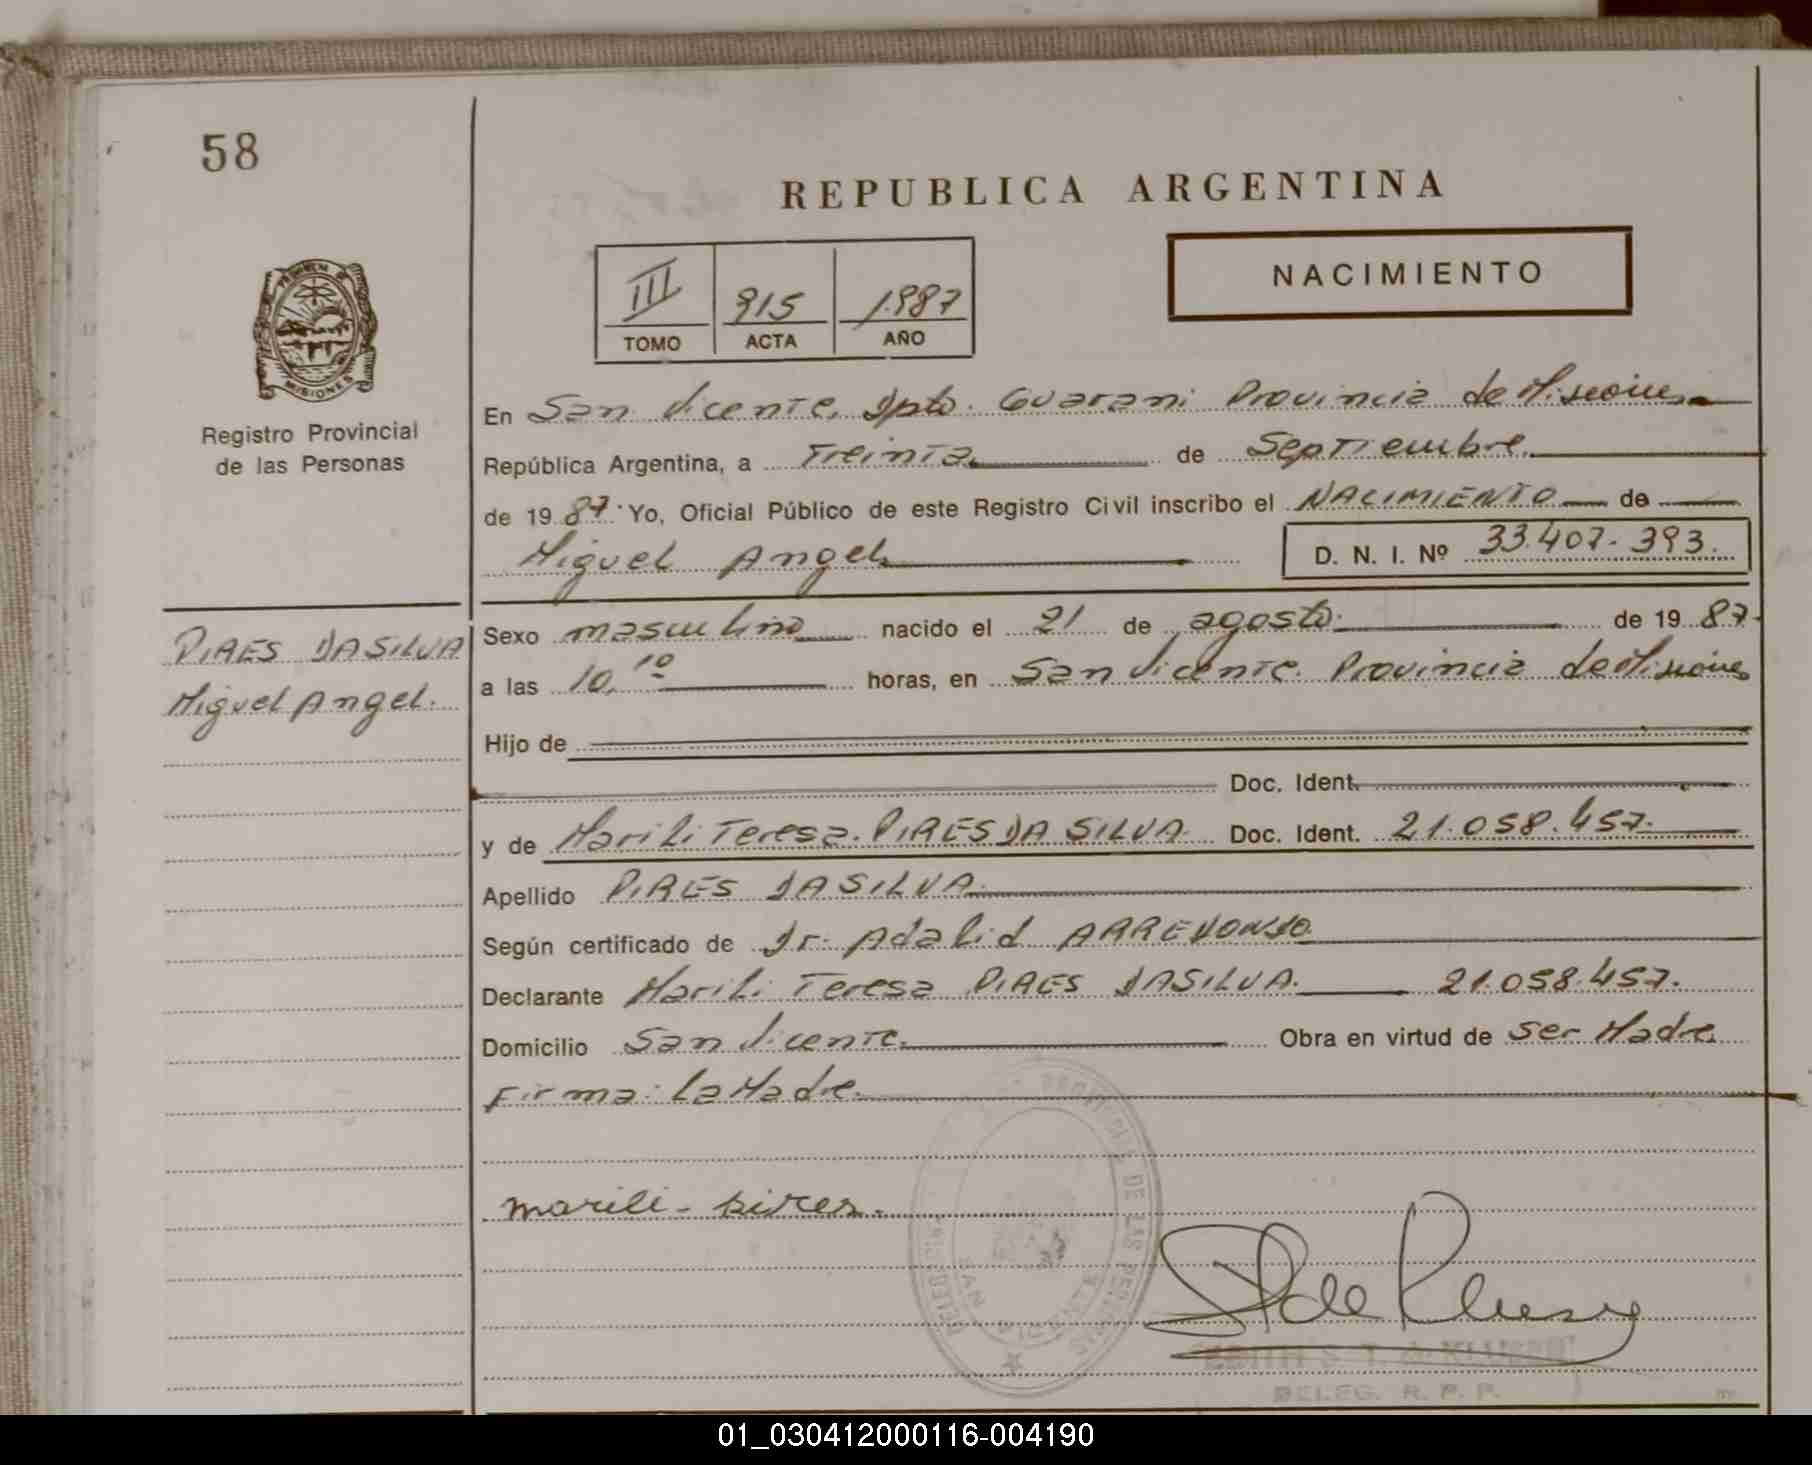 58
REPUBLICA ARGENTINA
III 915 1.987
TOMO ACTA AÑO
NACIMIENTO
MISIONES
Registro Provincial
de las Personas
En San Vicente, Dpto. Guarani Provincia de Misiones
República Argentina, a Treinta de Septiembre
de 19 87 Yo, Oficial Público de este Registro Civil inscribo el NACIMIENTO de
Miguel Angel D. N. I. Nº 33.407.393.
PIRES DA SILVA
Miguel Angel.
Sexo masculino nacido el 21 de agosto de 19 87
a las 10,10 horas, en San Vicente. Provincia de Misiones
Hijo de
Doc. Ident.
y de Marili Teresa. PIRES DA SILVA Doc. Ident. 21.058.457.
Apellido PIRES DA SILVA.
Según certificado de Dr. Adalid ARREDONDO
Declarante Marili Teresa PIRES DA SILVA. 21.058.457.
Domicilio San Vicente. Obra en virtud de Ser Madre
Firma: La Madre.
marili - pires.
DE LAS
SAN VICENTE
DELEG. R. P. P.
01_030412000116-004190